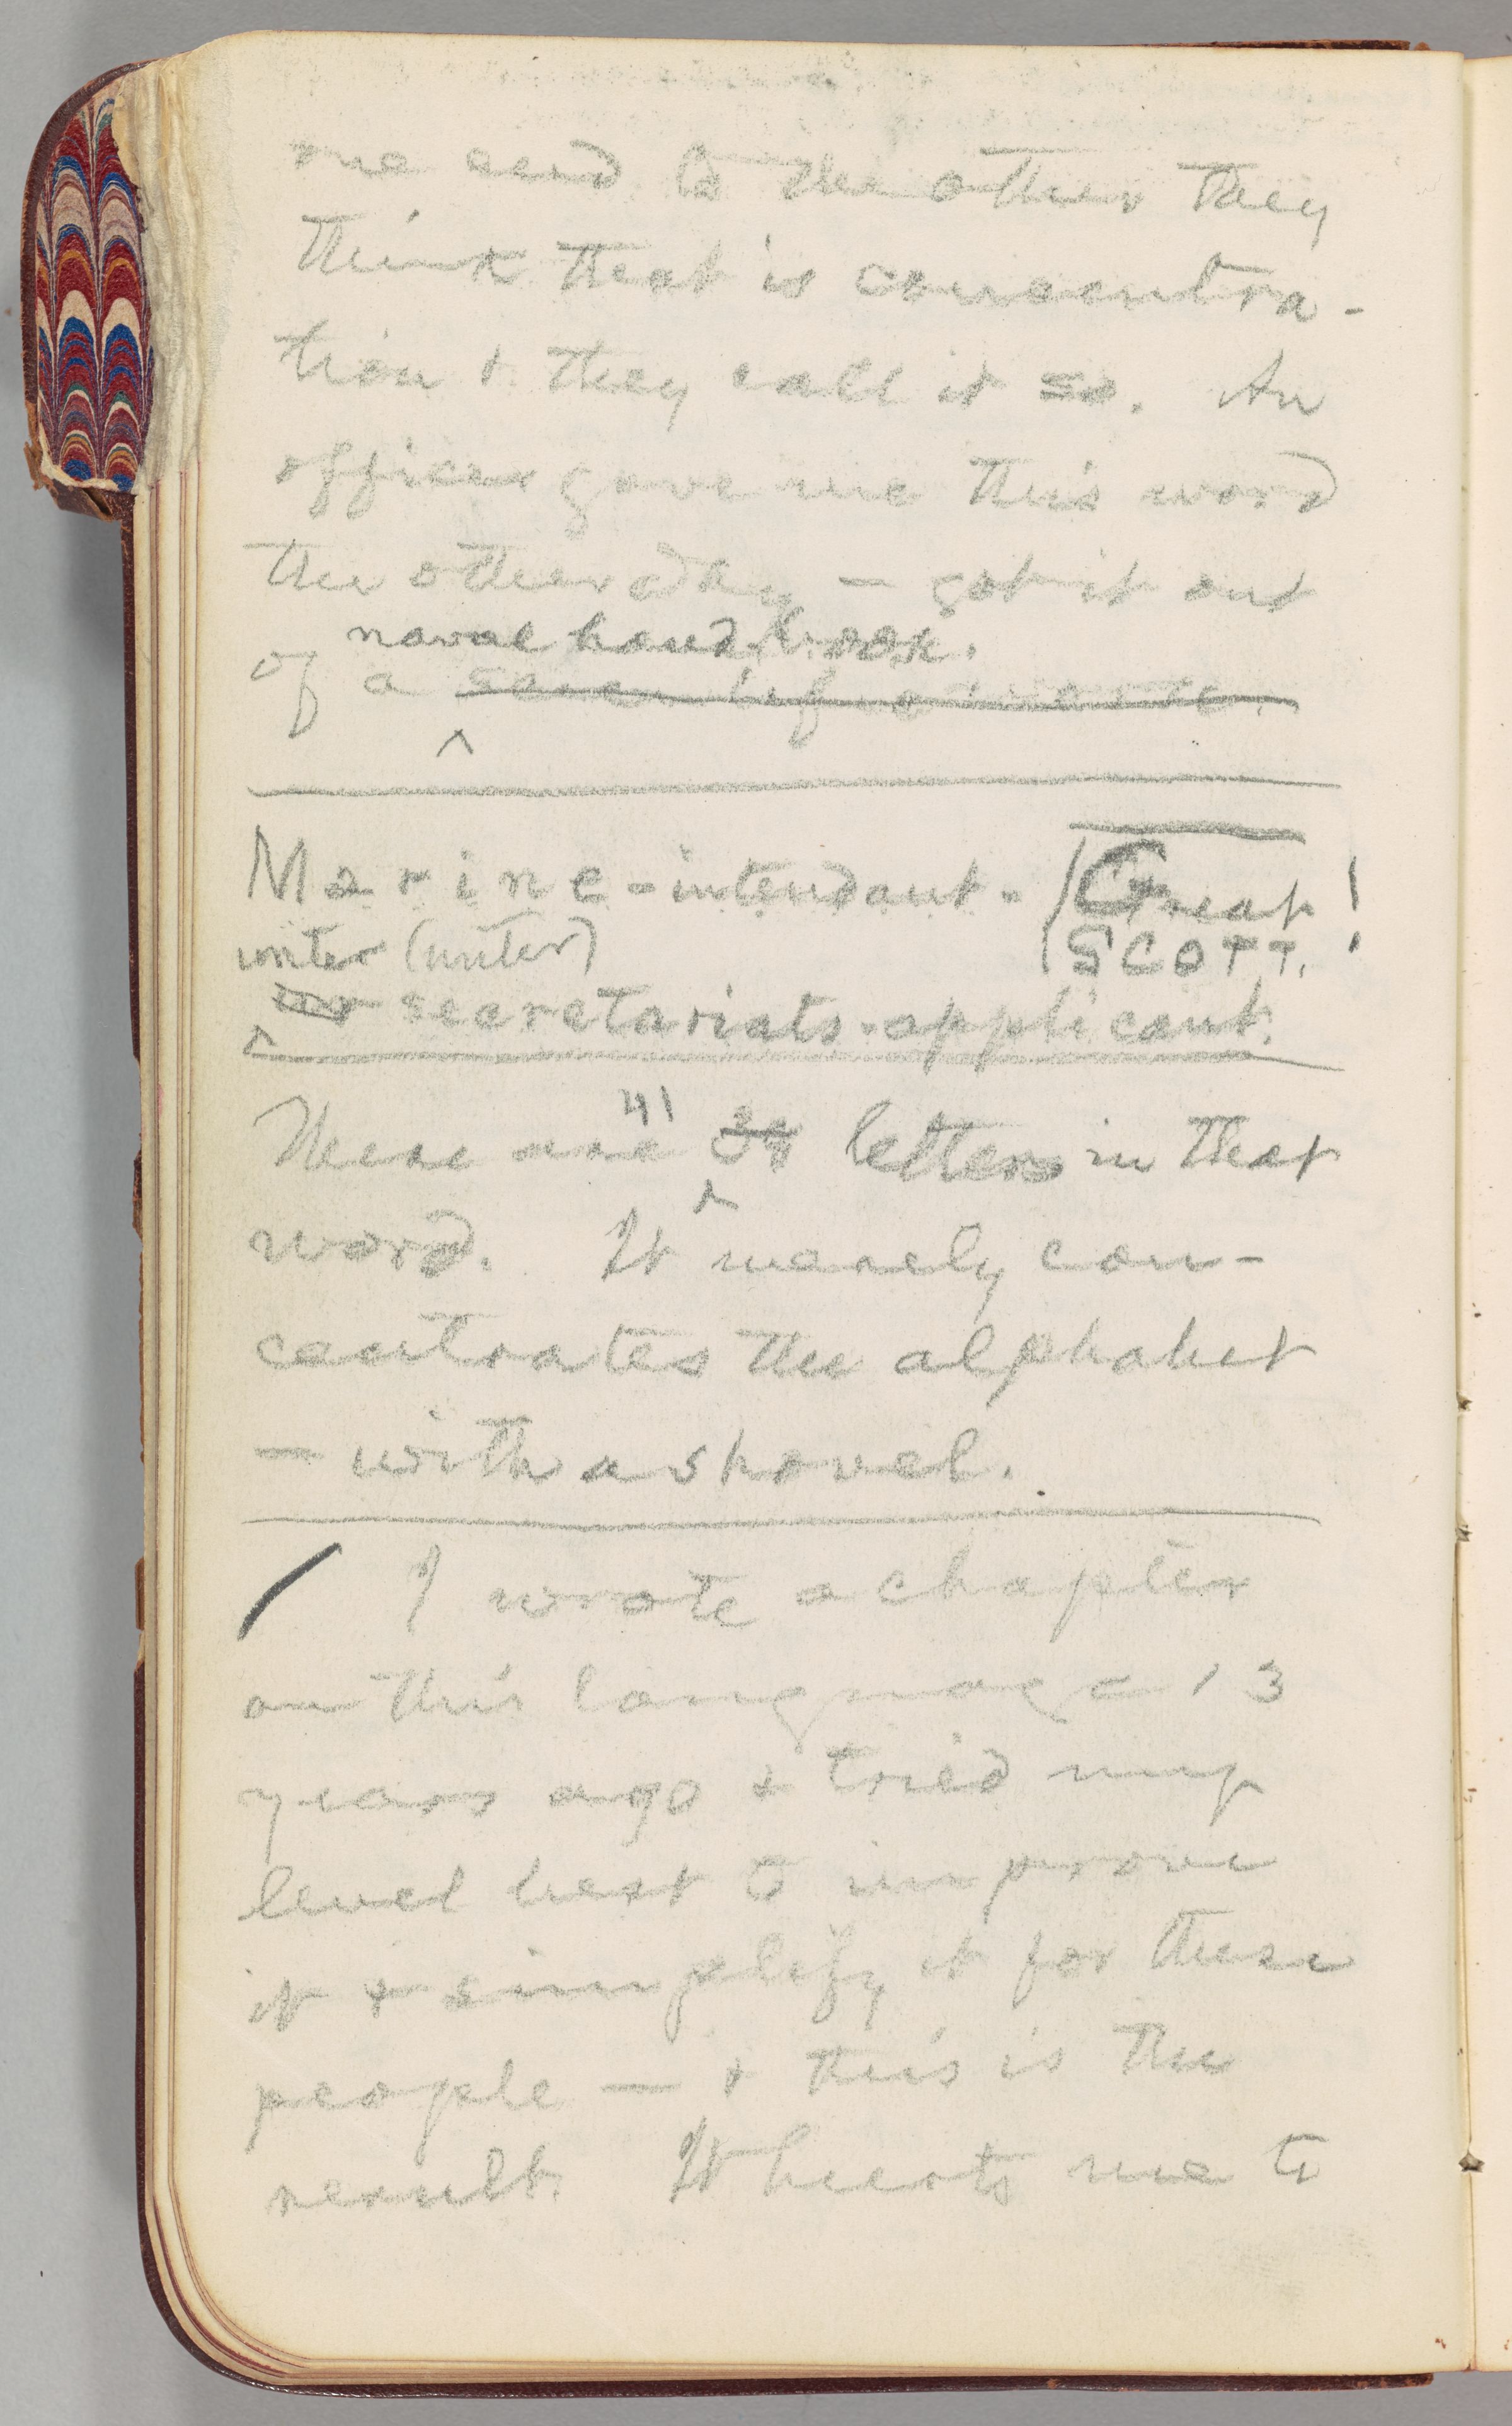 one end to the other they
think that is concentra-
tion & they call it so. An
officer gave me this word
the other day — got it out
naval hand-book.
of a
^
Marine-intendant- Great !
unter (unter) SCOTT. !
secretariats-applicant.
^
41
There are 38 letters in that
^
word. It merely con-
centrates the alphabet
— with a shovel.
I wrote a chapter
on this language 13
years ago & tried my
level best to improve
it & simplify it for these
people — & this is the
result. It hurts me to